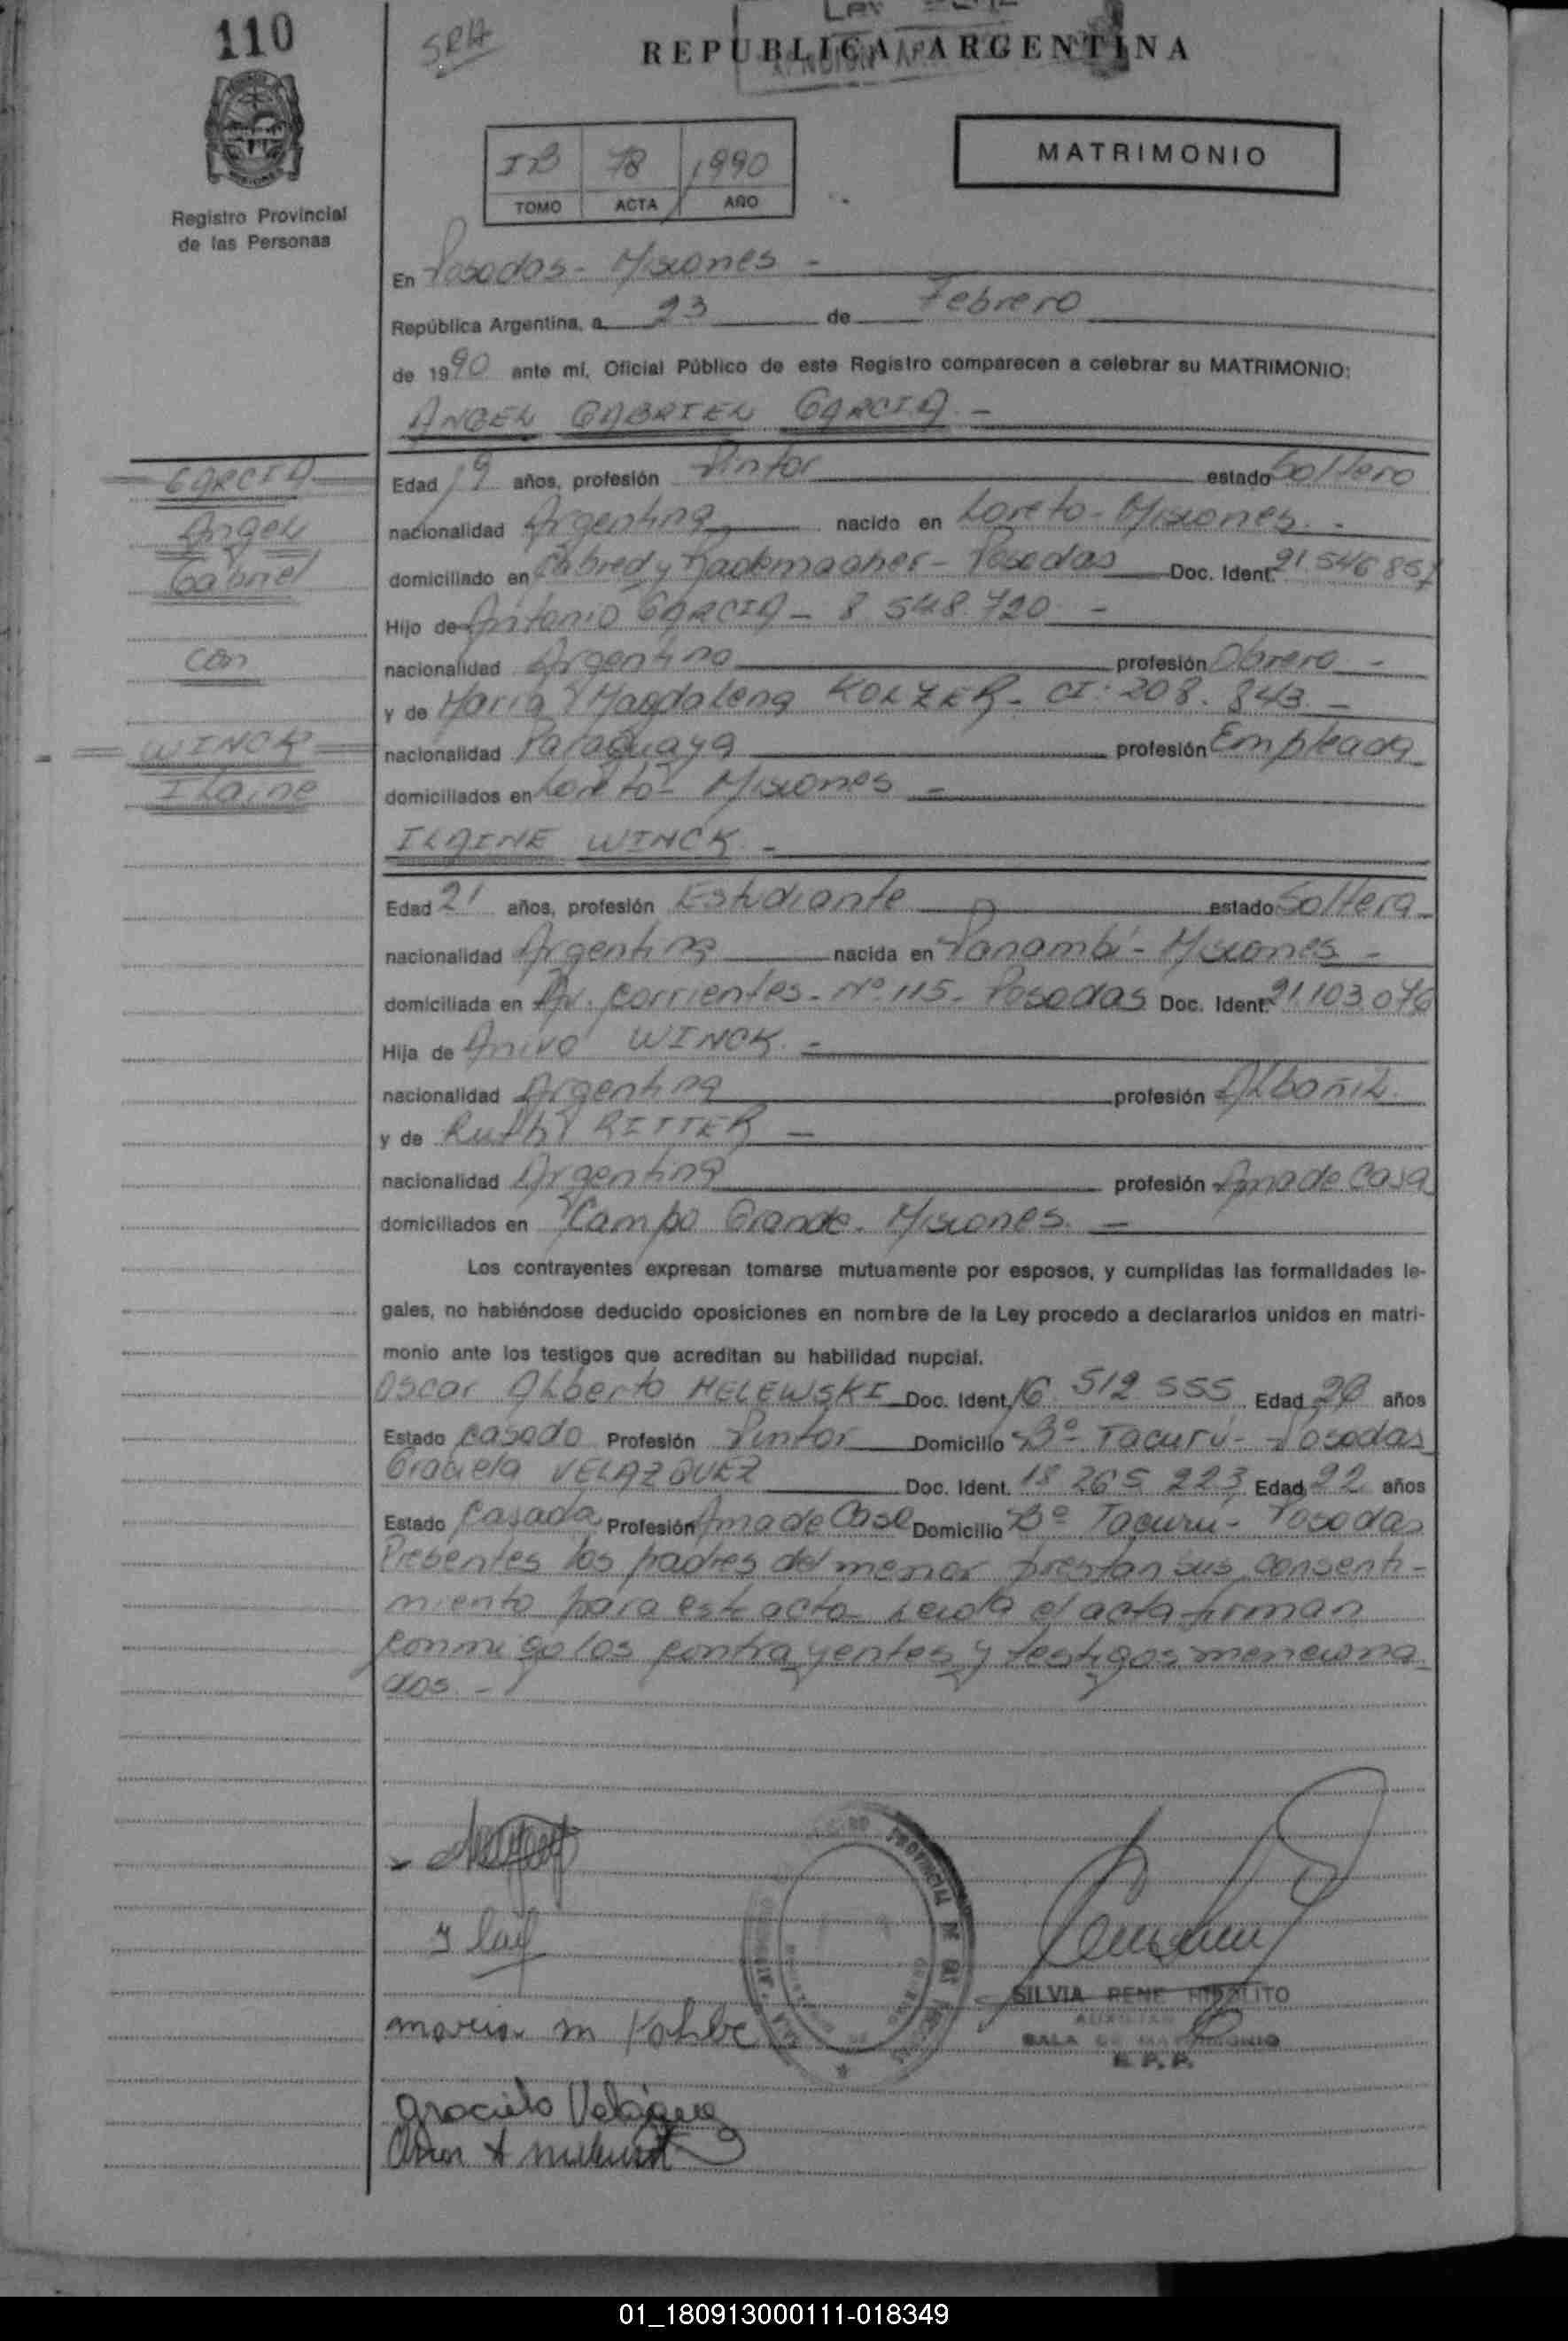 110
SRA
Ley
REPUBLICA ARGENTINA
Registro Provincial
de las Personas
IB 78 1990
TOMO ACTA AÑO
MATRIMONIO
En Posadas - Misiones -
República Argentina, a 23 de Febrero
de 1990 ante mí, Oficial Público de este Registro comparecen a celebrar su MATRIMONIO:
ANGEL GABRIEL GARCIA. -
GARCIA
Angel
Gabriel
con
WINCK
Ilaine
Edad 19 años, profesión Pintor estado Soltero
nacionalidad Argentina nacido en Loreto - Misiones. -
domiciliado en Cabred y Rademacher - Posadas Doc. Ident. 21.546.857
Hijo de Antonio GARCIA - 8.548.720 -
nacionalidad Argentino profesión Obrero -
y de María Magdalena KOLZER - CI: 208.843. -
nacionalidad Paraguaya profesión Empleada
domiciliados en Loreto - Misiones -
ILAINE WINCK. -
Edad 21 años, profesión Estudiante estado Soltera
nacionalidad Argentina nacida en Panambí - Misiones -
domiciliada en Av. Corrientes - Nº 115 - Posadas Doc. Ident. 21.103.076
Hija de Anivo WINCK. -
nacionalidad Argentina profesión Albañil.
y de Ruth RITTER -
nacionalidad Argentina profesión Ama de Casa
domiciliados en Campo Grande - Misiones. -
Los contrayentes expresan tomarse mutuamente por esposos, y cumplidas las formalidades le-
gales, no habiéndose deducido oposiciones en nombre de la Ley procedo a declararlos unidos en matri-
monio ante los testigos que acreditan su habilidad nupcial.
Oscar Alberto MELEWSKI Doc. Ident. 16.512.555 Edad 26 años
Estado Casado Profesión Pintor Domicilio Bº Tacurú - Posadas
Graciela VELAZQUEZ Doc. Ident. 18.265.223 Edad 22 años
Estado Casada Profesión Ama de Casa Domicilio Bº Tacurú - Posadas
Presentes los padres del menor prestan sus consenti-
miento para este acto. Leída el acta firman
conmigo los contrayentes y testigos menciona
dos. -
SILVIA RENE HIPOLITO
AUXILIAR
SALA DE MATRIMONIO
R. P. P.
Graciela Velázquez
01_180913000111-018349